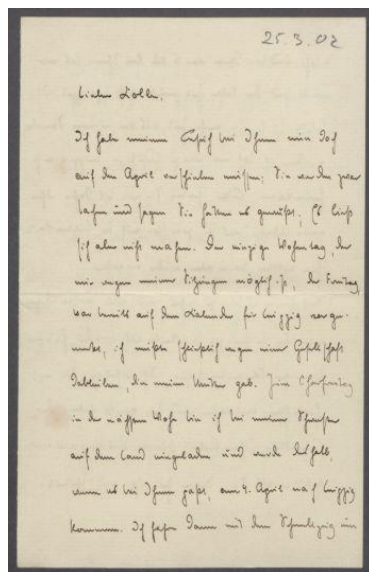 25.3.02
Lieber Kolbe,
Ich habe meinen Besuch bei Ihnen nun doch
auf den April verschieben müssen; Sie werden zwar
lachen und sagen Sie hätten es gewußt. Es ließ
sich aber nicht machen. Der einzige Wochentag, der
mir wegen meiner Sitzungen möglich ist, der Freitag,
war bereits auf dem Kalender für Leipzig vorge-
merkt, ich mußte schließlich wegen einer Gesellschaft
dableiben, die meine Mutter gab. Zum Charfreitag
in der nächsten Woche bin ich bei meiner Schwester
auf dem Land eingeladen und werde deshalb,
wenn es bei Ihnen paßt, am 4. April nach Leipzig
kommen. Ich fahre dann mit dem Schnellzug um